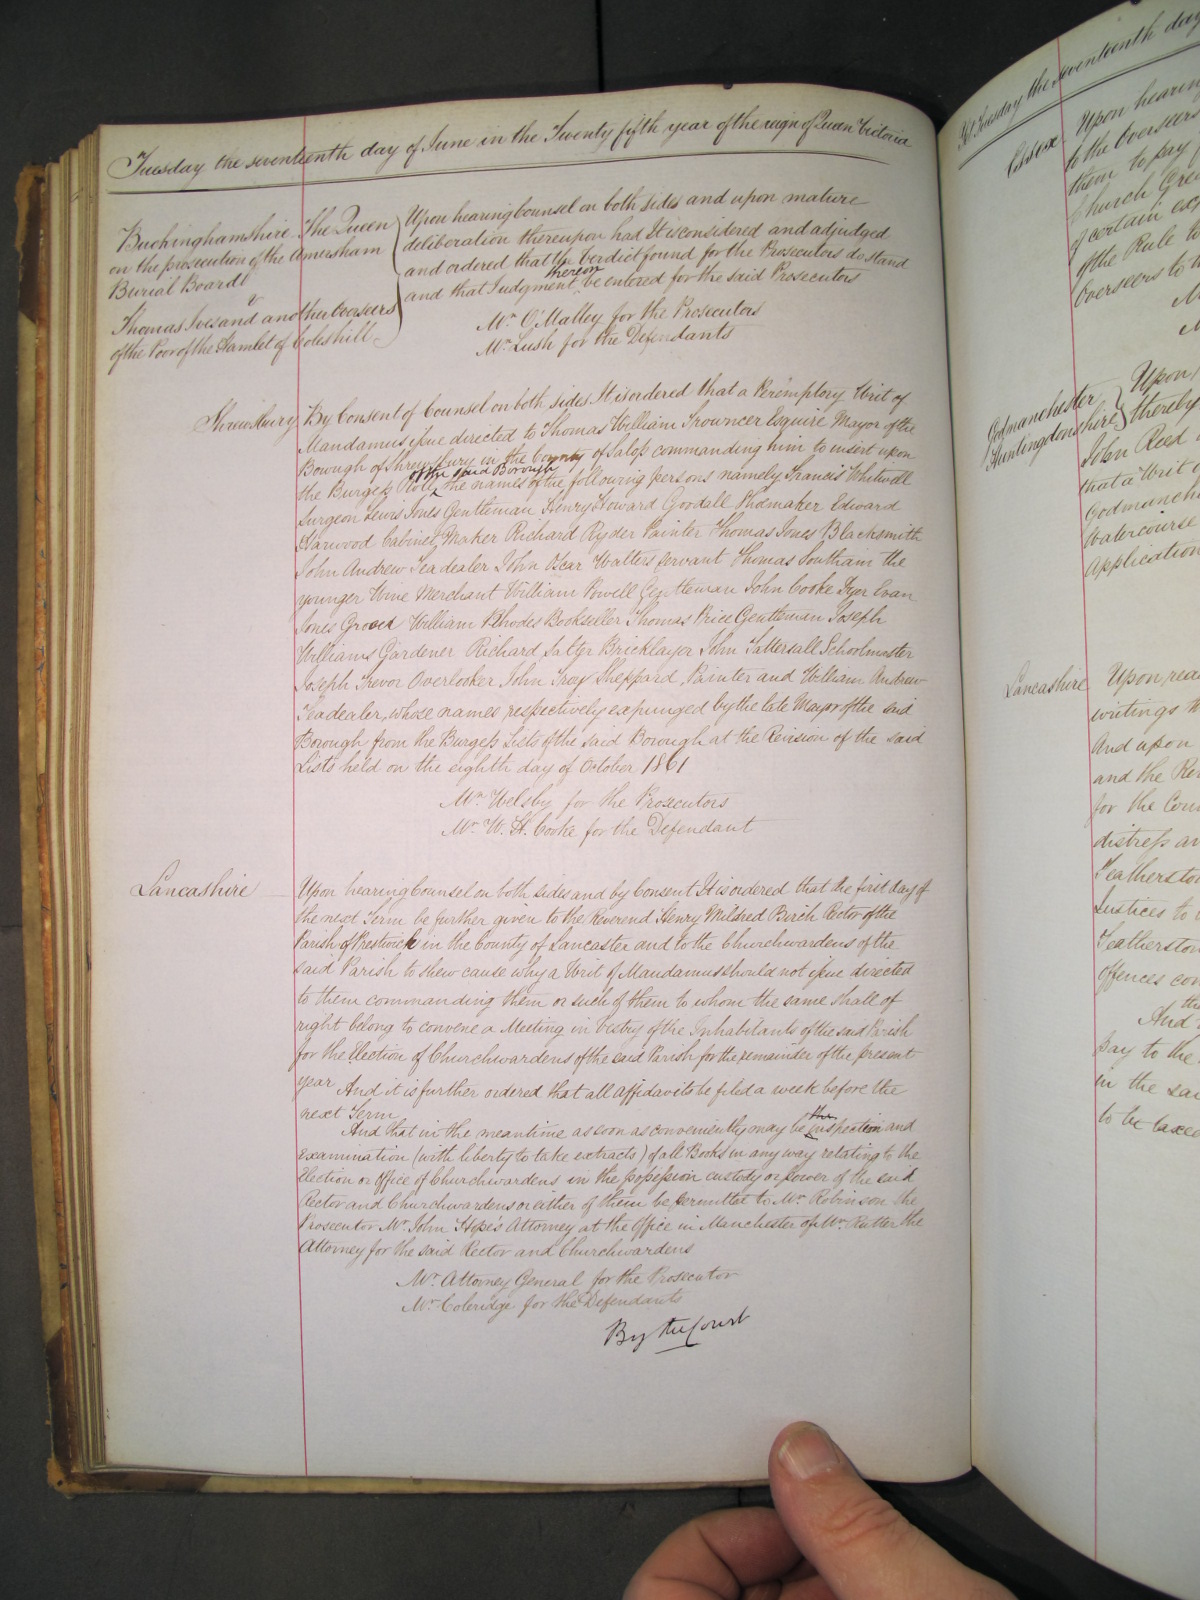 Tuesday the seventeenth day of June in the Twenty fifth year of the reign of Queen Victoria
Buckinghamshire The Queen
on the prosecution of the Amersham
Burial Board
v
Thomas Ives and another Overseers
of the Poor of the Hamlet of Coleshill
Upon hearing Counsel on both sides and upon mature
deliberation thereupon had It is considered and adjudged
and ordered that the Verdict found for the Prosecutors do stand
thereon
and that Judgment be entered for the said Prosecutors
Mr. O'Malley for the Prosecutors
Mr. Lush for the Defendants
Shrewsbury By Consent of Counsel on both sides It is ordered that a Peremptory Writ of
Mandamus issue directed to Thomas William Trouncer Esquire Mayor of the
Borough of Shrewsbury in the County of Salop commanding him to insert upon
of the said Borough
the Burgess Roll the names of the following persons namely Francis Whitwell
Surgeon Lewis Jones Gentleman Henry Howard Goodall Andmaker Edward
Harwood Cabinet Maker Richard Ryder Painter Thomas Jones Blacksmith
John Andrew Teadealer John Oscar Walters servant Thomas Southam the
younger Wine Merchant William Powell Gentleman John Cooke Dyer Evan
Jones Grocer William Rhodes Bookseller Thomas Price Gentleman Joseph
Williams Gardener Richard Salter Bricklayer John Tattersall Schoolmaster
Joseph Trevor Overlooker John Troy Sheppard Painter and William Andrew
Teadealer, whose names respectively expunged by the late Mayor of the said
Borough from the Burgess Lists of the said Borough at the Revision of the said
Lists held on the eighth day of October 1861
Mr. Welsby for the Prosecutors
Mr. W. H. Cooke for the Defendant
Lancashire Upon hearing Counsel on both sides and by Consent It is ordered that the first day of
the next Term be further given to the Reverend Henry Mildred Birch Rector of the
Parish of Prestwich in the County of Lancaster and to the Churchwardens of the
said Parish to shew cause why a Writ of Mandamus should not issue directed
to them commanding them or such of them to whom the same shall of
right belong to convene a Meeting in Vestry of the Inhabitants of the said Parish
for the Election of Churchwardens of the said Parish for the remainder of the present
year And it is further ordered that all affidavits be filed a week before the
next Term
the
And that in the meantime as soon as conveniently may be inspection and
Examination (with liberty to take extracts) of all Books in any way relating to the
Election or Office of Churchwardens in the possession custody or power of the said
Rector and Churchwardens or either of them be permitted to Mr. Robinson the
Prosecutor Mr. John Hope's Attorney at the Office in Manchester of Mr. Rutter the
Attorney for the said Rector and Churchwardens
Mr. Attorney General for the Prosecutor
Mr. Coleridge for the Defendants
By the Court
Tuesday the seventeenth day
Essex Upon hearing
to the Overseers
them to pay
Church
of certain
of the Rule
Overseers to
Godmanchester
Huntingdonshire
Upon
thereby
John Reed
that a Writ
Godmanche
Watercourse
Application
Lancashire Upon rea
writings
And upon
and the Re
for the Con
distress an
Featherston
Justices to
Featherston
offences con
And
pay to the
in the sai
to be taxed